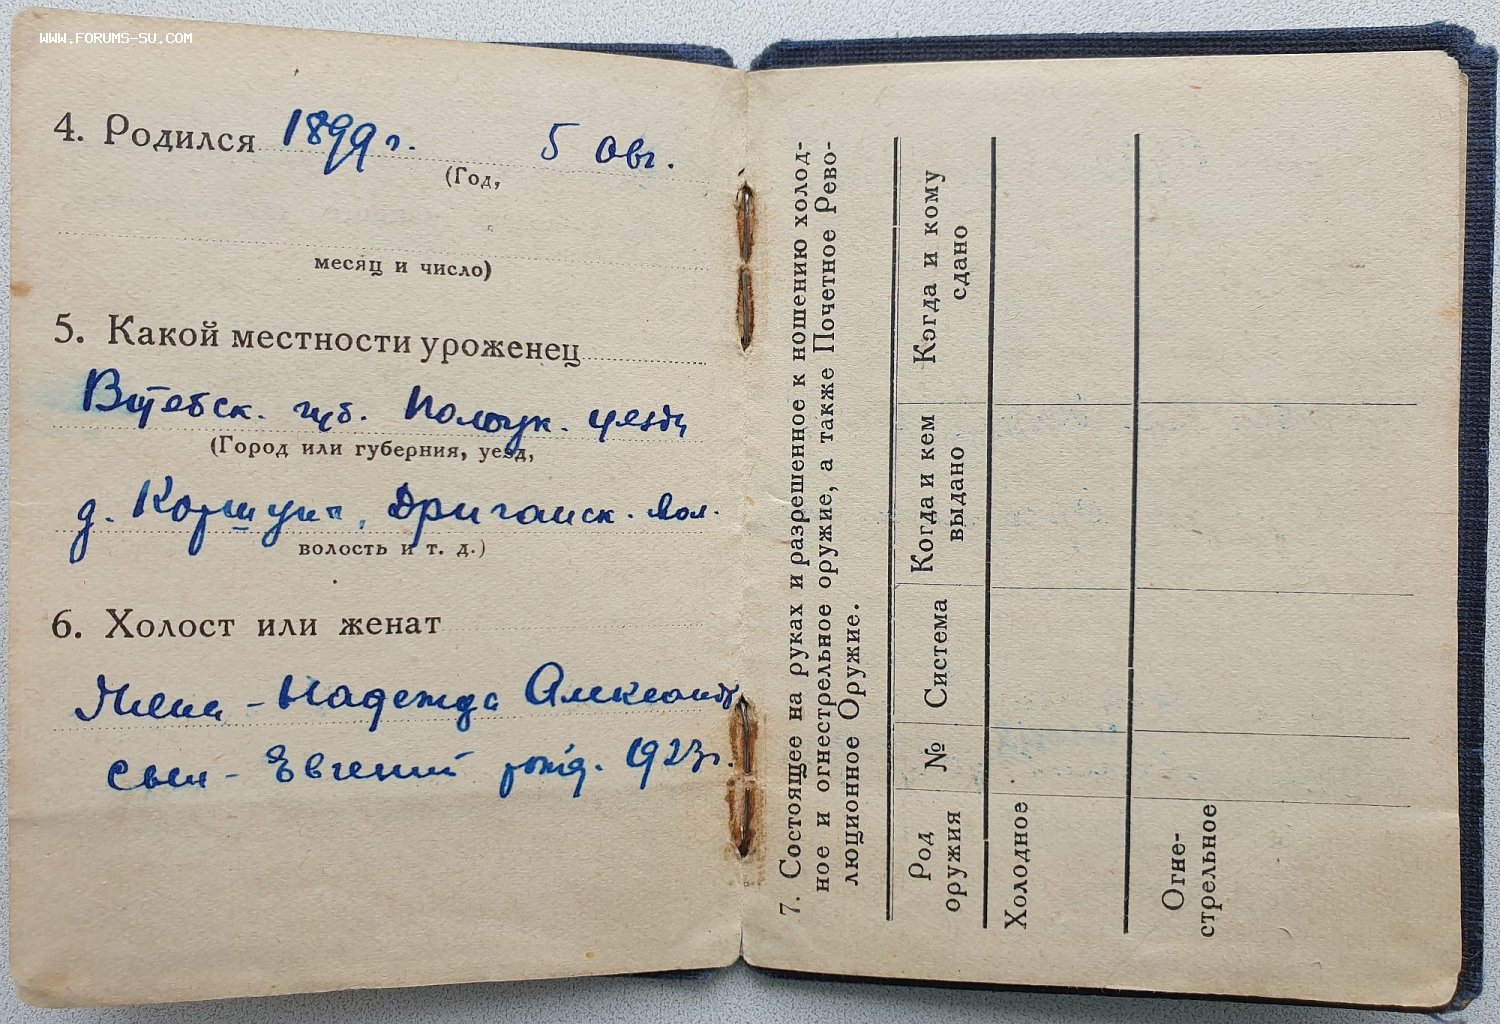 WWW.FORUMS-SU.COM
4. Родился 1899 г. 5 Авг.
(Год,
месяц и число)
5. Какой местности уроженец
Витебск. губ. Полоцк. уезд,
(Город или губерния, уезд,
д. Коршуны, Дриганск. вол.
волость и т. д.)
6. Холост или женат
Жена - Надежда Александр
сын - Евгений рожд. 1923г.
7. Состоящее на руках и разрешенное к ношению холод-
ное и огнестрельное оружие, а также Почетное Рево-
люционное Оружие.
Род
оружия
№
Система
Когда и кем
выдано
Когда и кому
сдано
Холодное
Огне-
стрельное